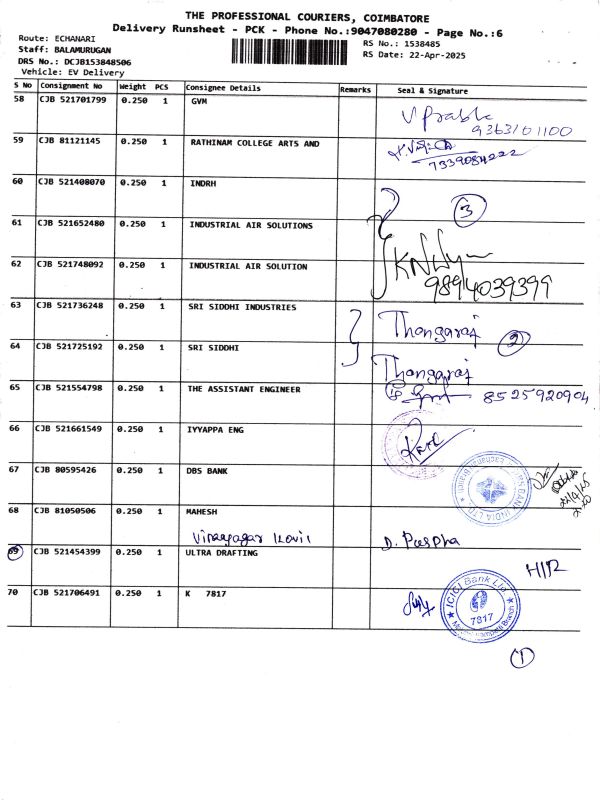 THE PROFESSIONAL COURIERS, COIMBATORE
Delivery Runsheet - PCK - Phone No.:9047080280 - Page No.:6
Route: ECHANARI
RS No.: 1538485
Staff: BALAMURUGAN
RS Date: 22-Apr-2025
DRS No.: DCJB153848506
Vehicle: EV Delivery
S No Consignment No Weight PCS Consignee Details Remarks Seal & Signature
58 CJB 521701799 0.250 1 GVM
9363101100
59 CJB 81121145 0.250 1 RATHINAM COLLEGE ARTS AND
7339084222
60 CJB 521408070 0.250 1 INDRH
3
61 CJB 521652480 0.250 1 INDUSTRIAL AIR SOLUTIONS
62 CJB 521748092 0.250 1 INDUSTRIAL AIR SOLUTION
9894039399
63 CJB 521736248 0.250 1 SRI SIDDHI INDUSTRIES
Thangaraj 2
64 CJB 521725192 0.250 1 SRI SIDDHI
Thangaraj
65 CJB 521554798 0.250 1 THE ASSISTANT ENGINEER
8525920904
66 CJB 521661549 0.250 1 IYYAPPA ENG
67 CJB 80595426 0.250 1 DBS BANK
BANK INDIA LTD
68 CJB 81050506 0.250 1 MAHESH
Vinayagar Kovil D. Puspha
69 CJB 521454399 0.250 1 ULTRA DRAFTING
70 CJB 521706491 0.250 1 K 7817
ICICI Bank Ltd.
7817
1